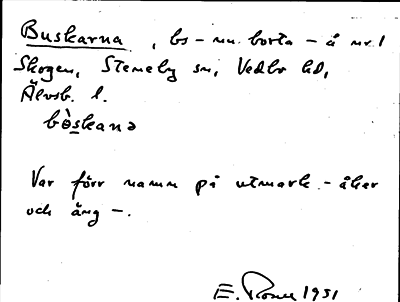 Buskarna, bs – nu borta – å nr 1
Skogen, Steneby sn, Vedbo hd,
Älvsb. l.
bòskanə
Var förr namn på utmark – åker
och äng –.
E. Rosm 1931